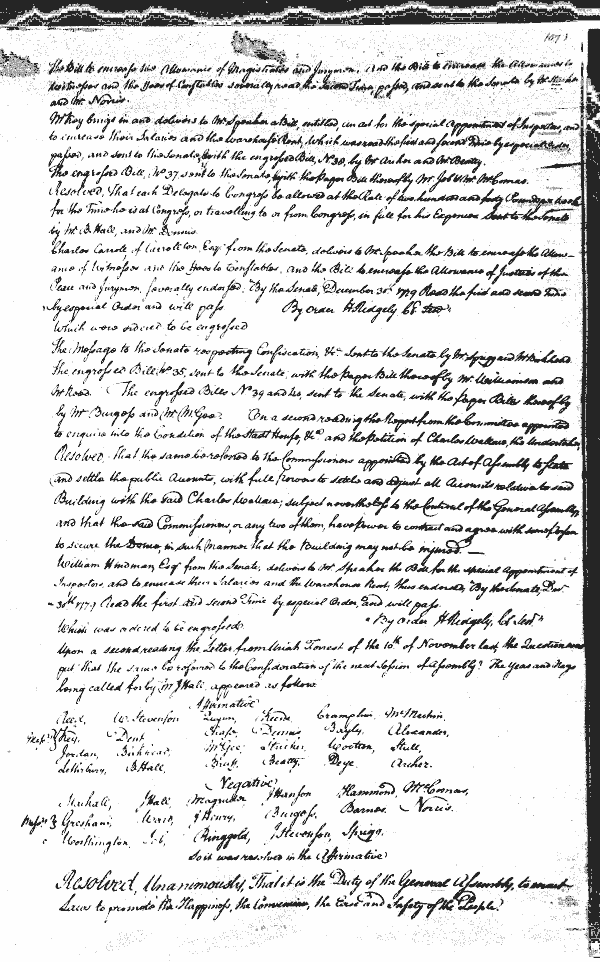 The Bill to encrease the Allowance of Magistrates and Jurymen, and the Bill to encrease the Allowance to
Witnesses and the Fees of Constables severally read the second Time, passed, and sent to the Senate by Mr
and Mr. Norris.
Mr Key brings in and delivers to Mr. Speaker a Bill, entitled, an act for the special Appointment of Inspectors, and
to increase their Salaries and the warehouse Rent, which was read the first and second Time by especial Order,
passed, and sent to the Senate, with the engrossed Bill, No 30, by Mr Archer and Mr Beatty.
The engrossed Bill, No 37 sent to the Senate, with the paper Bill thereof by Mr Job & Mr. McComas.
Resolved, That each Delegate to Congress be allowed at the Rate of two hundred and forty Pounds per week
for the Time he is at Congress, or travelling to or from Congress, in full for his Expences Sent to the Senate
by Mr. B. Hall, and Mr. Dennis.
Charles Carroll of Carrollton, Esqr from the Senate, delivers to Mr Speaker the Bill to encrease the Allow-
ance of Witnesses and the Fees to Constables, and the Bill to encrease the Allowance of Justices of the
Peace and Jurymen, severally endorsed; "By the Senate, December 30th 1779 Read the first and second Time
by especial Order and will pass By order H Ridgely Cl. Sen"
Which were ordered to be engrossed
The Message to the Senate respecting Confiscation, &c. sent to the Senate by Mr Sprigg and Mr Birkhead
the engrossed Bill, No 35, sent to the Senate, with the paper Bill thereof by Mr. Williamson and
Mr Reed. The engrossed Bills No 39 and 40, sent to the Senate, with the paper Bills thereof by
by Mr. Burgess and Mr McGee. On a second reading the Report from the Committee appointed
to enquire into the Condition of the Stadt House, &c. and the Petition of Charles Wallace, the Undertaker,
Resolved, that the same be referred to the Commissioners appointed by the Act of Assembly to state
and settle the public Accounts, with full Powers to settle and adjust all Accounts relative to said
Building with the said Charles Wallace; subject nevertheless to the Controul of the General Assembly,
and that the said Commissioners or any two of them, have power to contract and agree with some person
to secure the Dome, in such Manner that the Building may not be injured.
William Hindman, Esqr from the Senate, delivers to Mr. Speaker the Bill for the special Appointment of
Inspectors, and to encrease their Salaries and the Warehouse Rent, thus endorsed, "By the Senate, Decr
30th 1779 Read the first and second Time by especial Order, and will pass.
Which was ordered to be engrossed. "By order H Ridgely, Cl. Sen"
Upon a second reading the Letter from Uriah Forrest of the 10th of November last, the Question was
put that the same be referred to the Consideration of the next Session of Assembly? The Yeas and Nays
being called for by Mr J Hall, appeared as follow.
Affirmative
Reed, W. Stevenson Quynn, Crampton, McMechin,
Key, Dent Dennis, Bayly, Alexander,
Jordan, Birkhead, McGee, Stricker, Wootten, Stull,
B. Hall, Beatty, Deye, Archer.
Negative
J Hall, Magruder J Hanson Hammond, McComas,
Gresham, J Henry, Burgess, Barnes, Norris.
Worthington, Job, Ringgold, J Stevenson, Sprigg.
So it was resolved in the Affirmative
Resolved, Unanimously, That it is the Duty of the General Assembly, to enact
Laws to promote the Happiness, the Convenience, the Ease and Safety of the People.